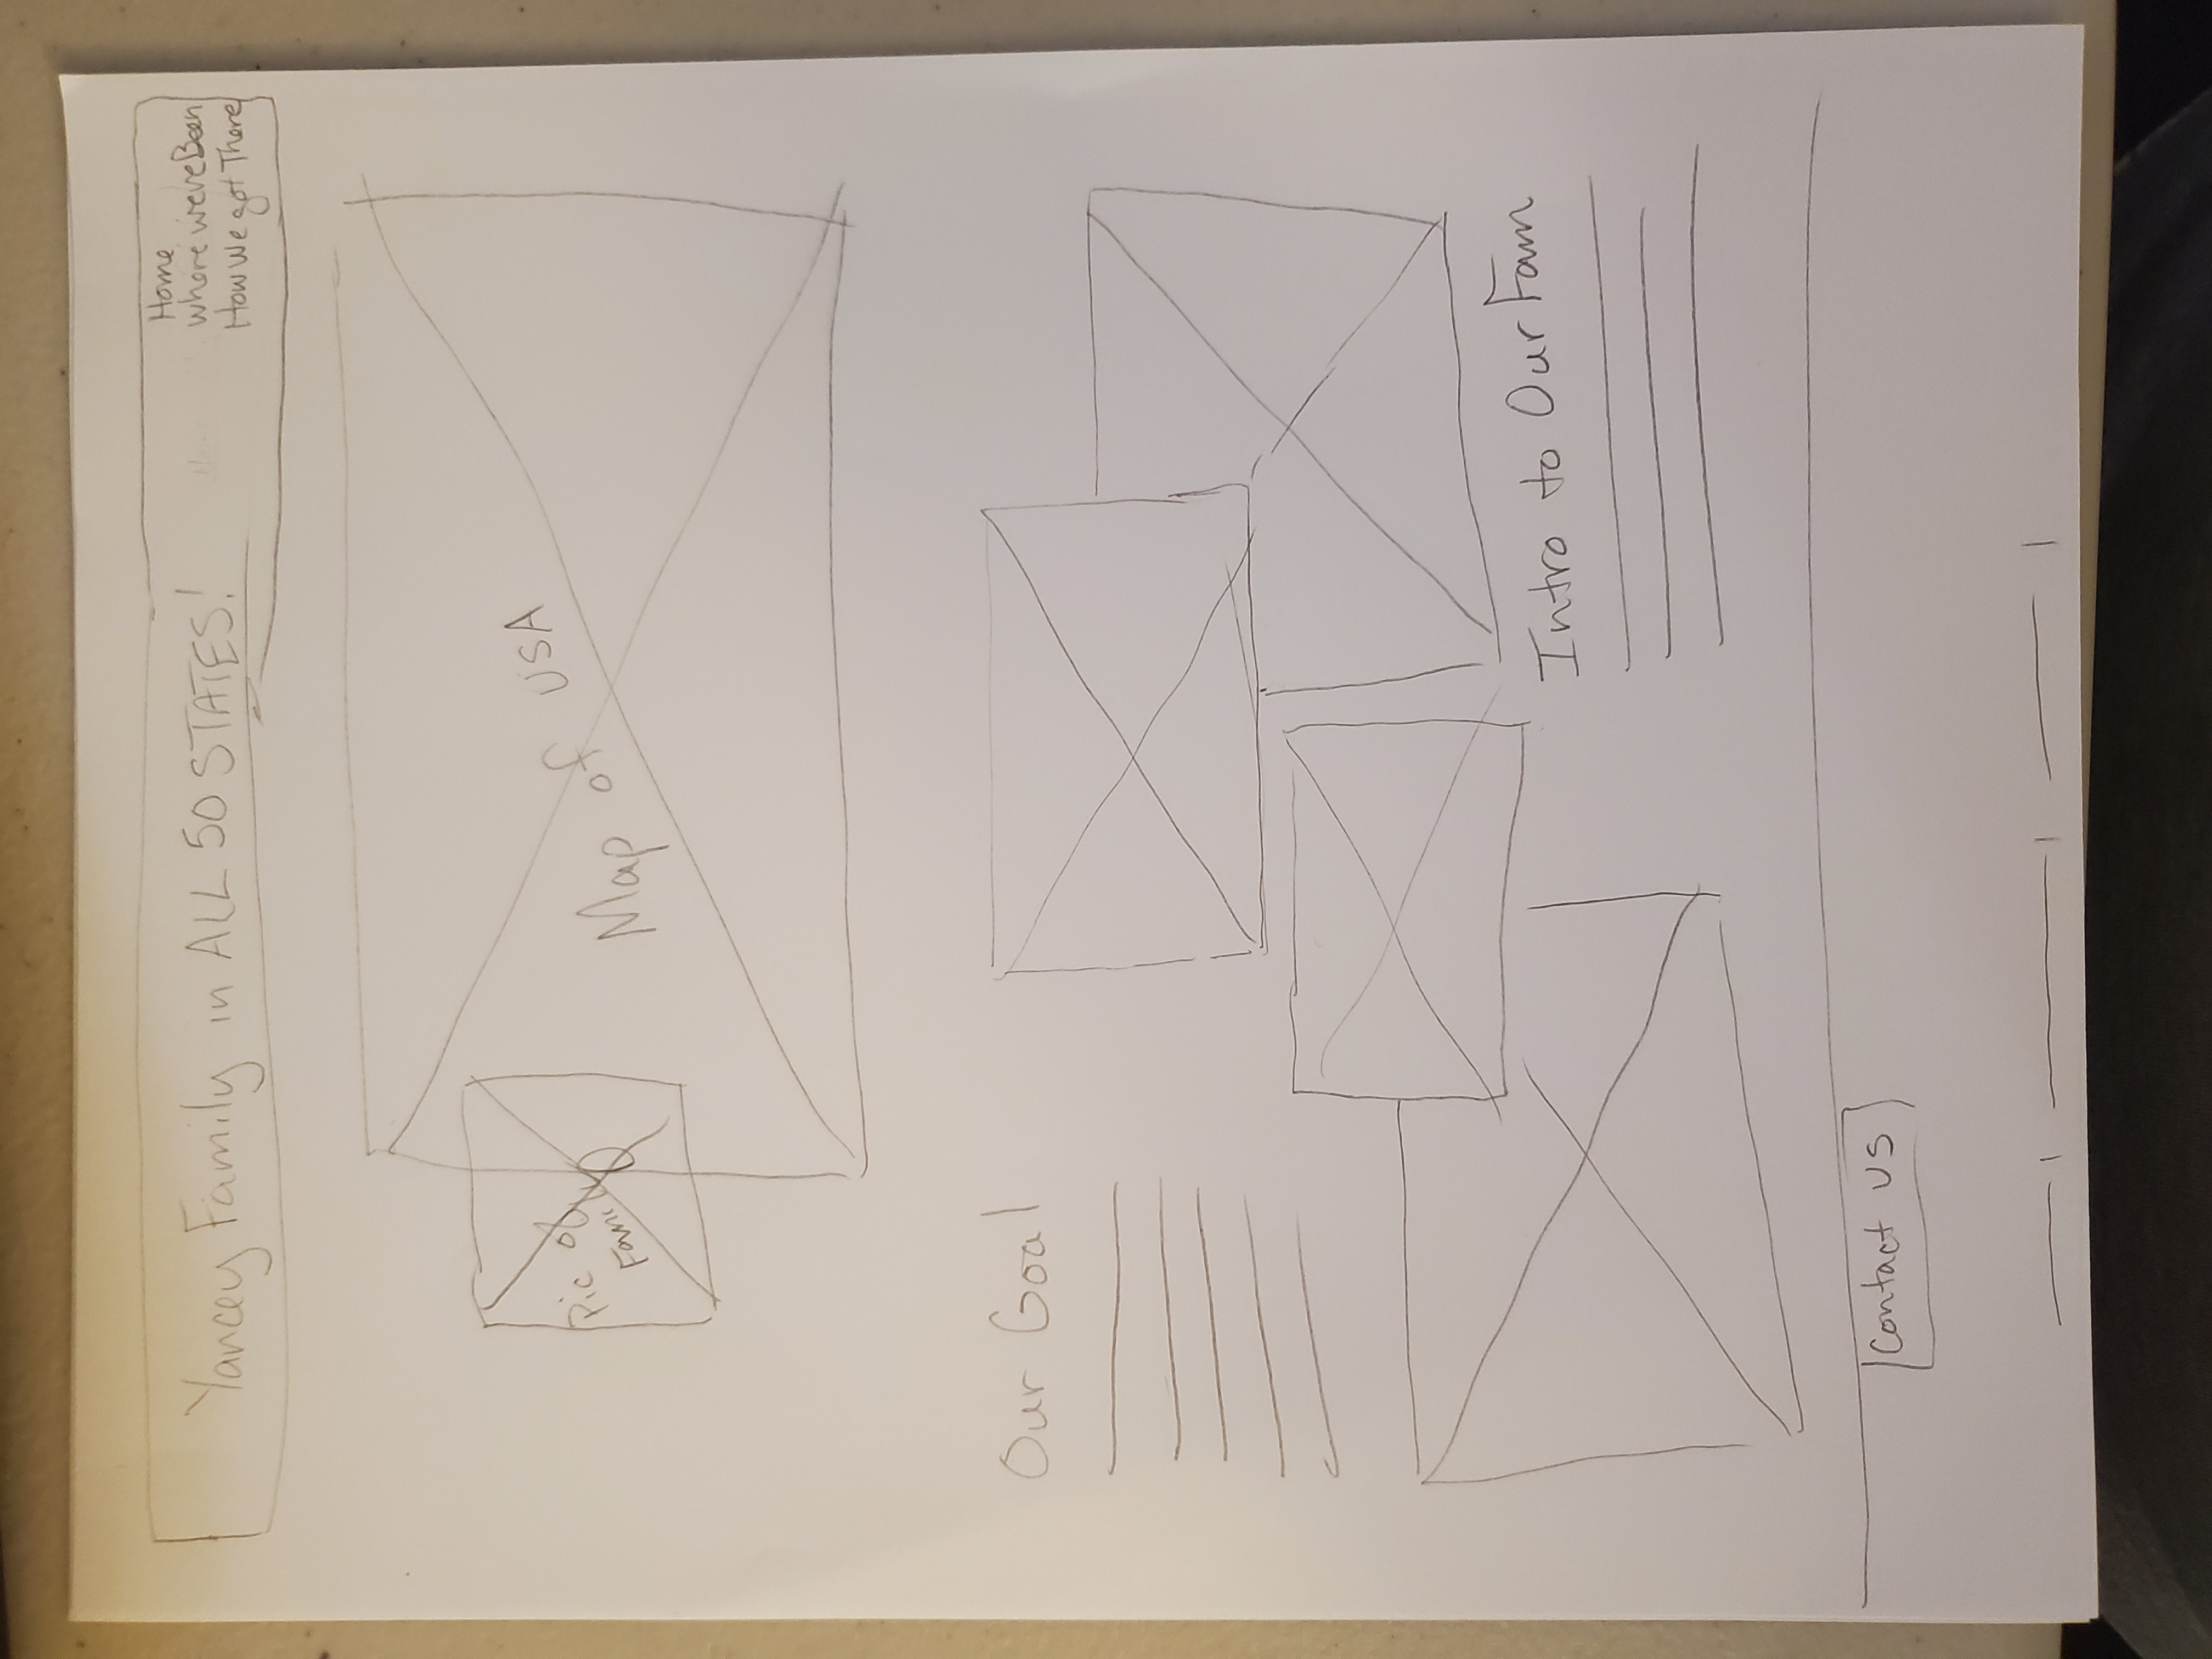 Yancey Family in ALL 50 STATES!
Home
where we've Been
How We got There
Pic of
Family
Map of USA
Our Goal
Intro to Our Fam
Contact US